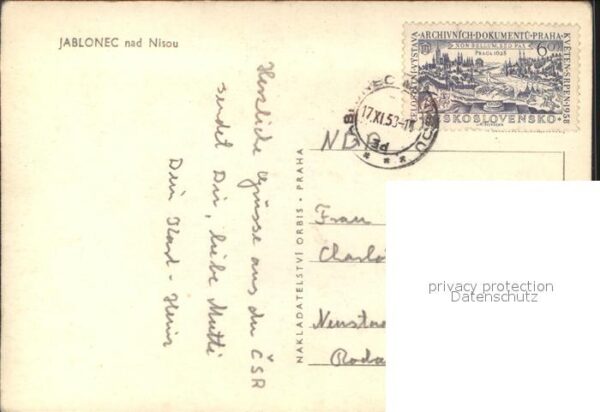 JABLONEC nad Nisou
Herzliche Grüsse aus der ČSR
sendet Dir, liebe Mutti
Dein Karl-Heinz
NAKLADATELSTVÍ ORBIS - PRAHA
CELOSTÁTNÍ VÝSTAVA ARCHIVNÍCH DOKUMENTŮ-PRAHA KVĚTEN-SRPEN 1958
NON BELLUM, SED PAX
PRAGA 1628
60h
ČESKOSLOVENSKO
17.XI.58-18
Frau
Charlo
privacy protection
Datenschutz